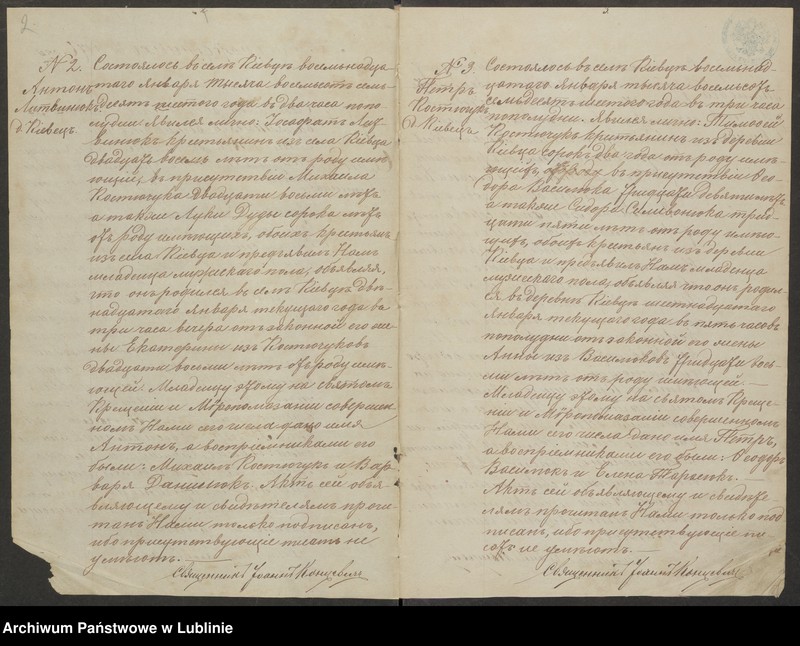 2.
№ 2.
Антонъ
Литвинюкъ
д. Кіевецъ.
Состоялось въ селѣ Кіевцѣ восемьнадца-
таго Января тысяча восемьсотъ семь-
десятъ шестого года въ два часа попо-
лудни. Явился лично: Іосафатъ Лит-
винюкъ крестьянинъ изъ села Кіевца
двадцать восемь лѣтъ отъ роду имѣ-
ющій, въ присутствіи Михаила
Костючука двадцати восьми лѣтъ
а также Луки Дуды сорока лѣтъ
отъ роду имѣющихъ, обоихъ крестьянъ
изъ села Кіевца и предъявилъ Намъ
младенца мужескаго пола, объявляя,
что онъ родился въ селѣ Кіевцѣ двѣ-
надцатаго Января текущаго года въ
три часа вечера отъ законной его же-
ны Екатерины изъ Костючуковъ
двадцати восьми лѣтъ отъ роду имѣ-
ющей. Младенцу этому на Святомъ
Крещеніи и Мѵропомазаніи совершен-
номъ Нами сего числа дано имя
Антонъ, а воспріемниками его
были: Михаилъ Костючукъ и Вар-
вара Данилюкъ. Актъ сей объя-
вляющему и свидѣтелямъ прочи-
танъ Нами только подписанъ,
ибо присутствующіе писать не
умѣютъ.
Священникъ Іоаннъ
№ 3.
Петръ
Костючукъ
д. Кіевецъ
Состоялось въ селѣ Кіевцѣ восемьнад-
цатаго Января тысяча восемьсотъ
семьдесятъ шестого года въ три часа
пополудни. Явился лично: Тимоѳей
Костючукъ крестьянинъ изъ деревни
Кіевца сорокъ два года отъ роду имѣ-
ющій, въ присутствіи Ѳео-
дора Василюка тридцати девяти лѣтъ
а также Сидора Симвонюка трид-
цати пяти лѣтъ отъ роду имѣю-
щихъ, обоихъ крестьянъ изъ деревни
Кіевца и предъявилъ Намъ младенца
мужескаго пола, объявляя что онъ родил-
ся въ деревнѣ Кіевцѣ шестнадцатаго
Января текущаго года въ пять часовъ
пополудни отъ законной его жены
Анны изъ Василюковъ тридцати вось-
ми лѣтъ отъ роду имѣющей.
Младенцу этому на Святомъ Креще-
ніи и Мѵропомазаніи совершенномъ
Нами сего числа дано имя Петръ,
а воспріемниками его были: Ѳеодоръ
Василюкъ и Елена Тарасюкъ.
Актъ сей объявляющему и свидѣте-
лямъ прочитанъ Нами только под-
писанъ, ибо присутствующіе пи-
сать не умѣютъ.
Священникъ Іоаннъ
Archiwum Państwowe w Lublinie